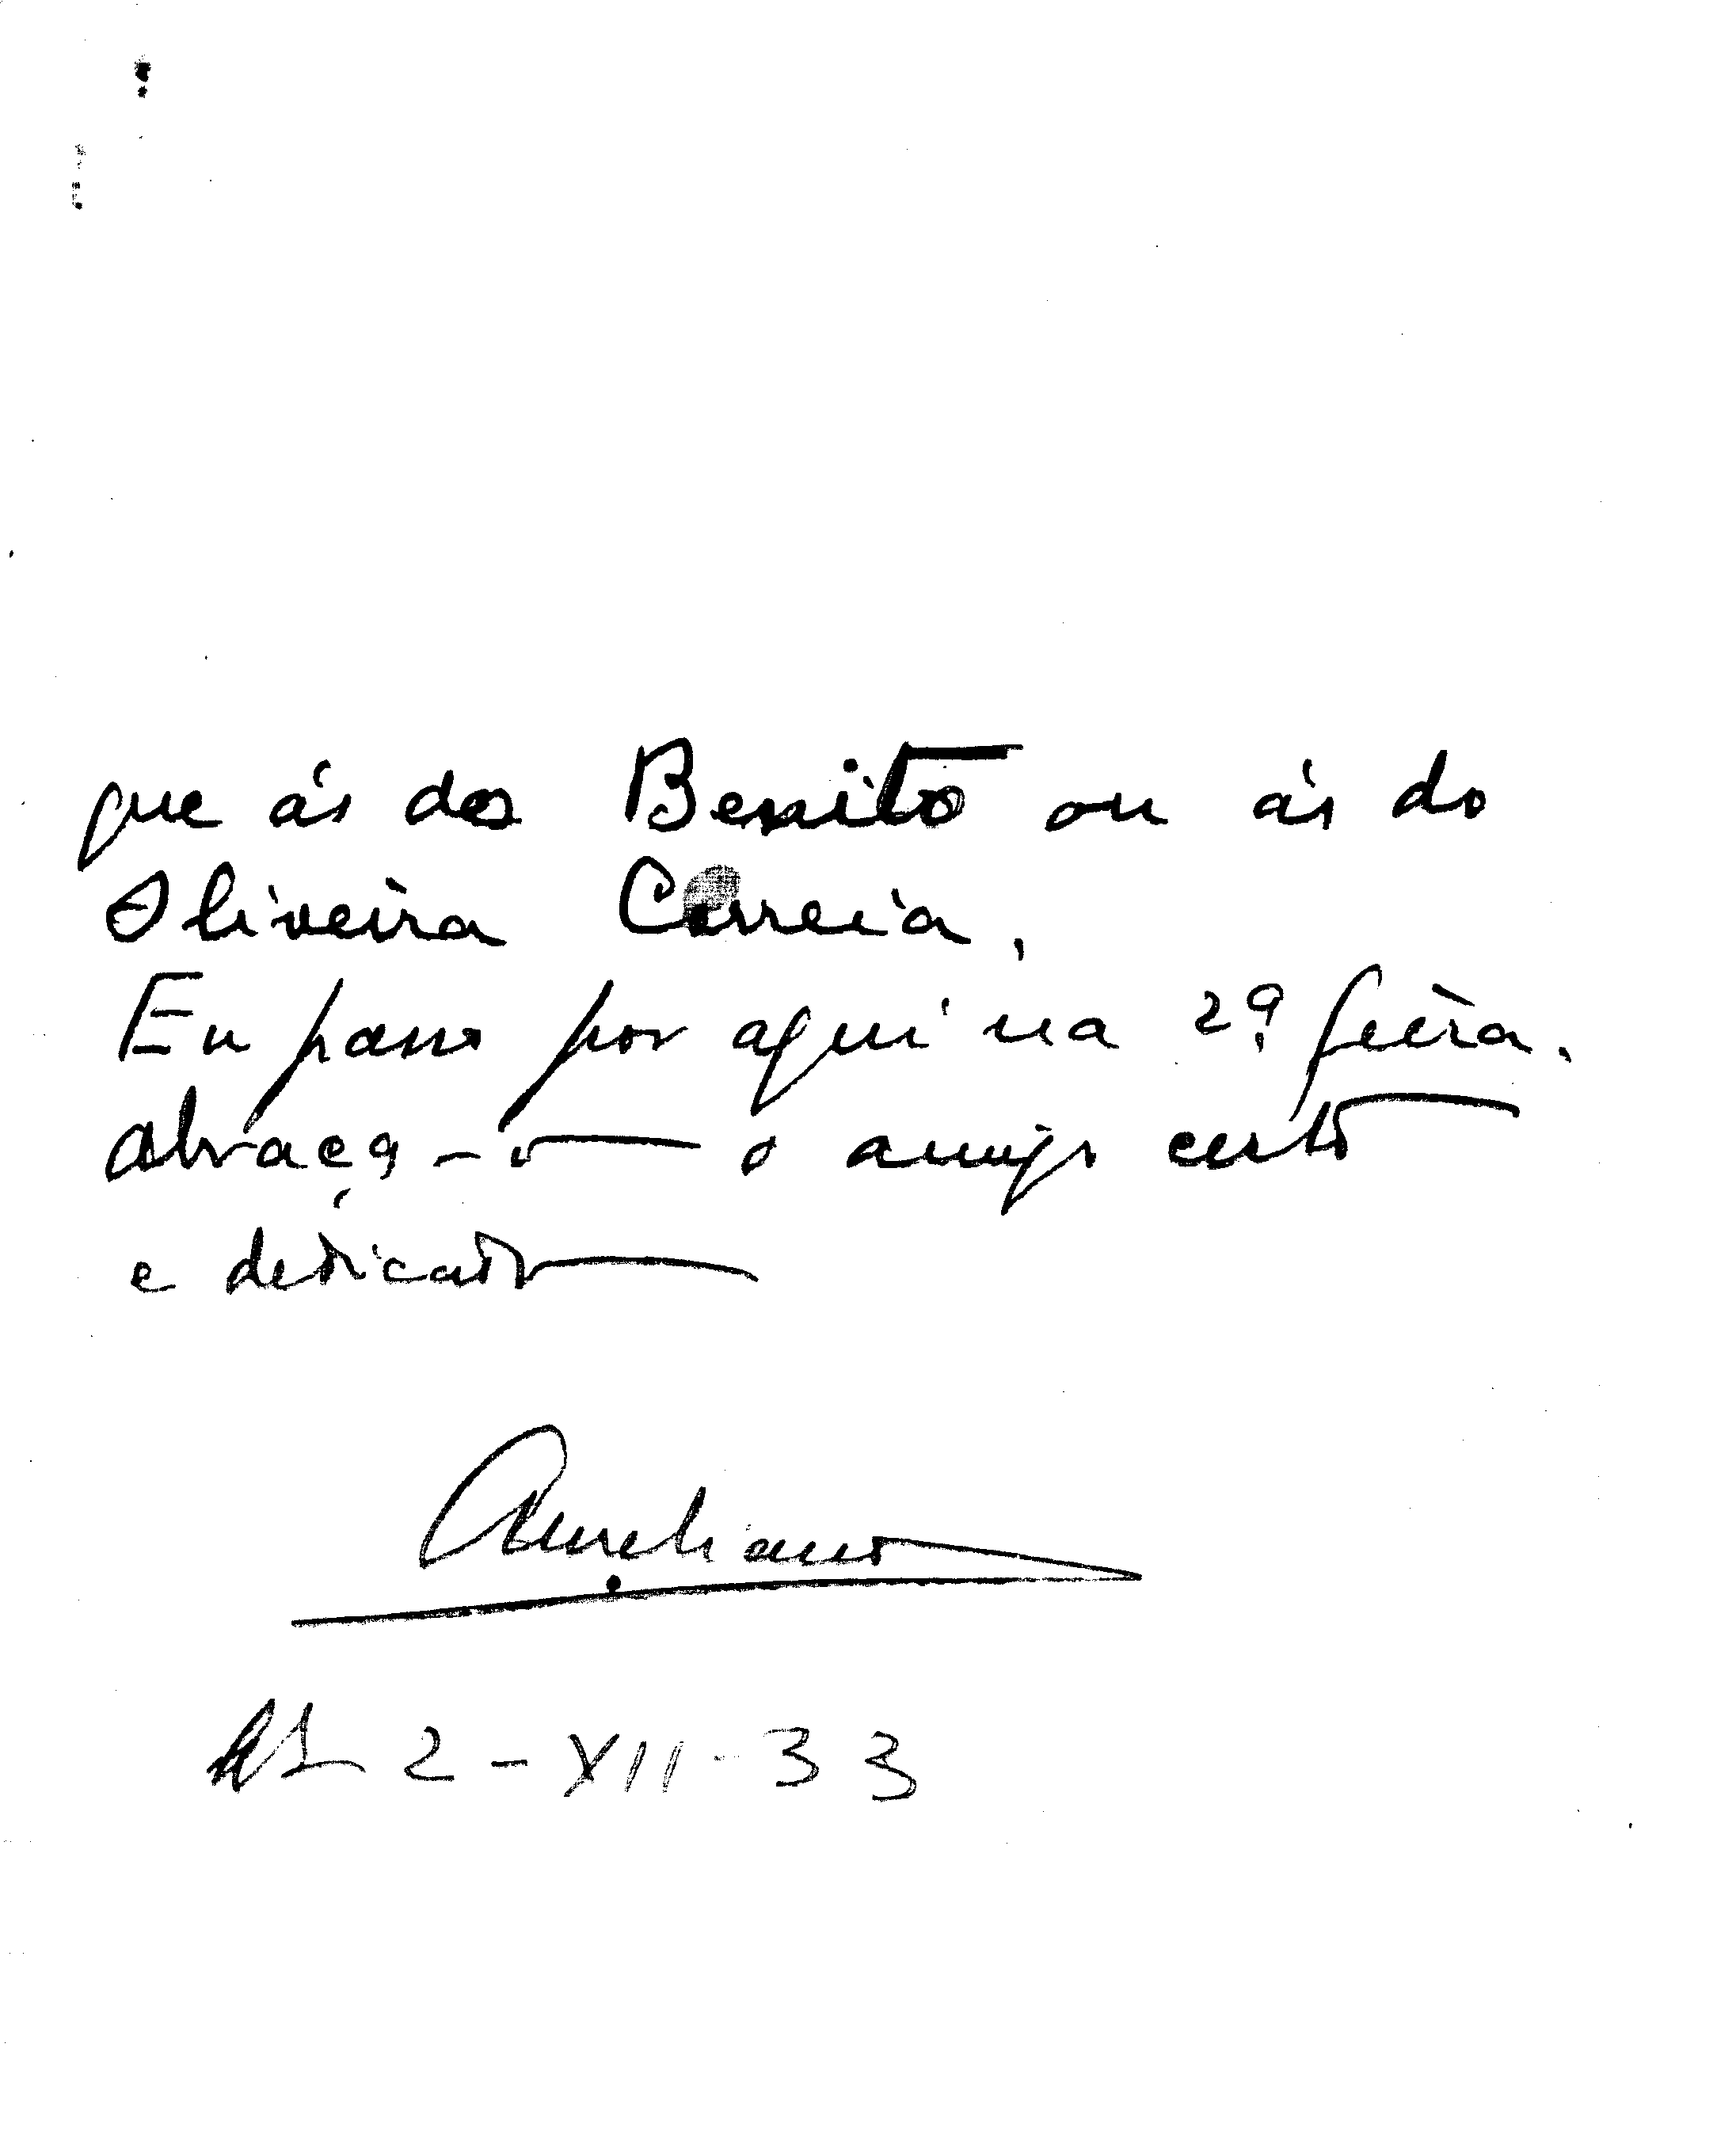 que ás do Benito ou ás do
Oliveira Correia.
Eu passo por aqui na 2ª feira.
Abraça-o o amigo certo
e dedicado
Aureliano
2-XII-33